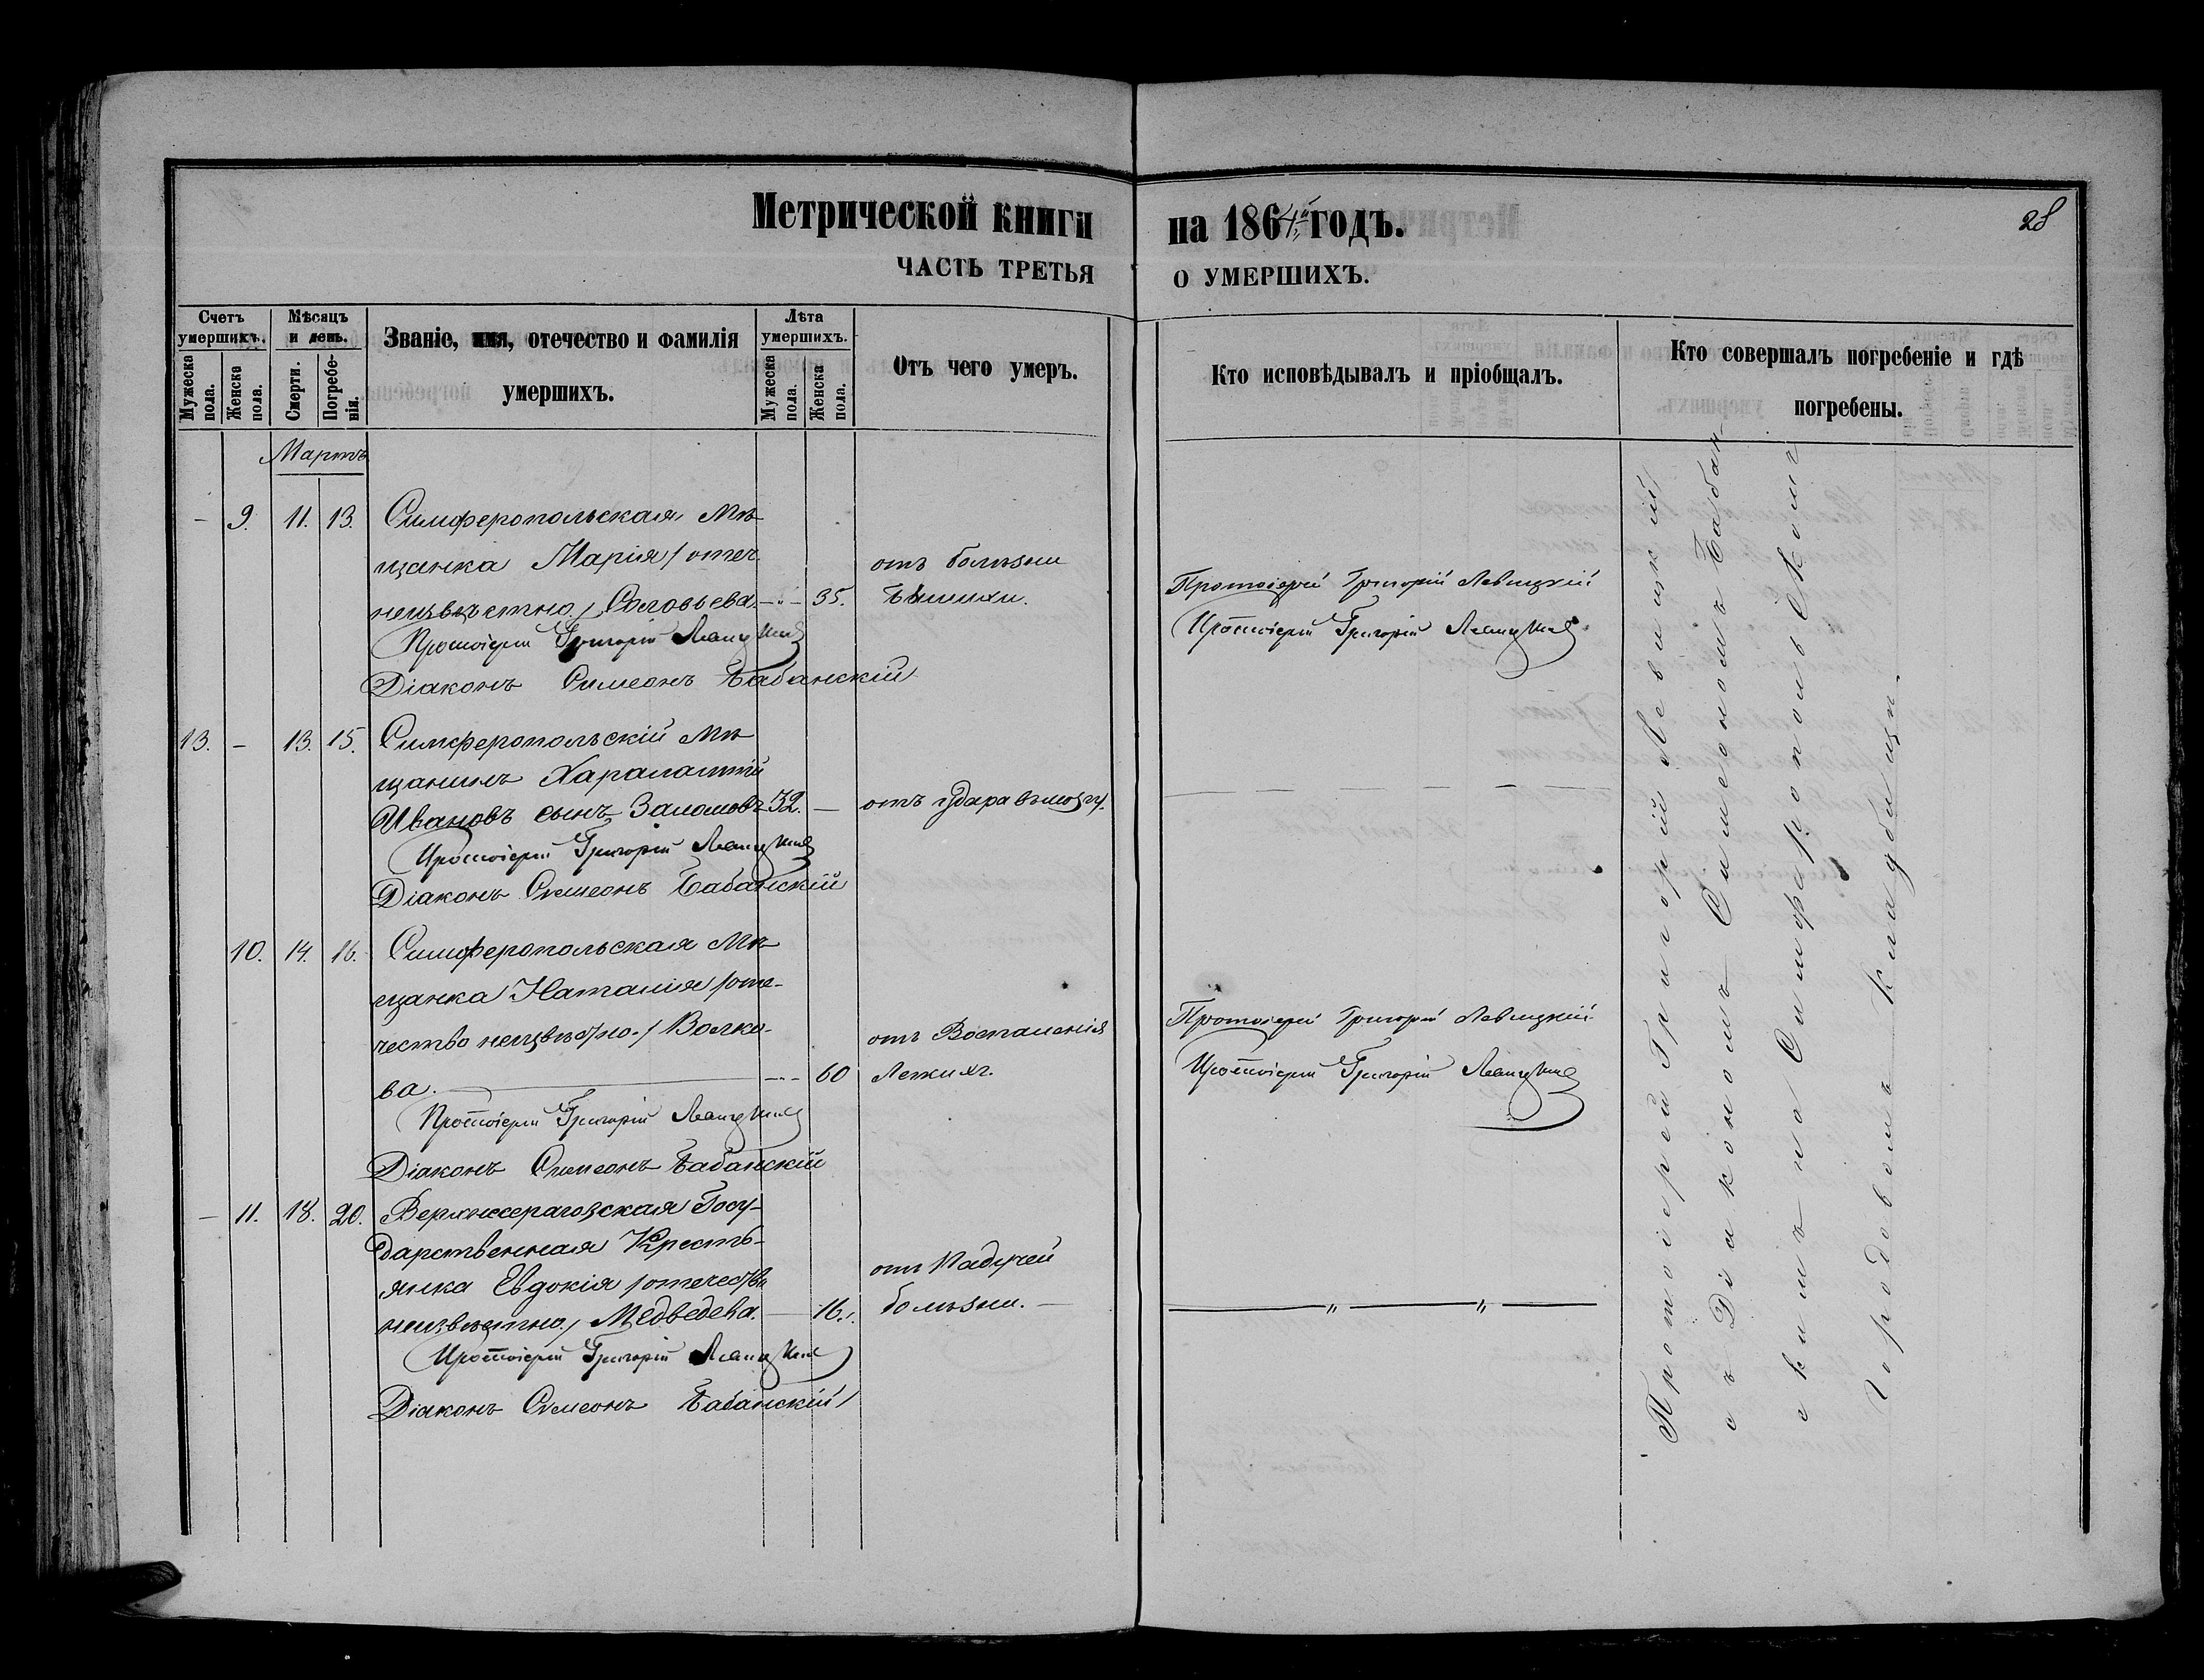 Метрической книги на 1864й годъ.
28
ЧАСТЬ ТРЕТЬЯ О УМЕРШИХЪ.
Счетъ умершихъ.
Мужеска пола.
Женска пола.
Мѣсяцъ и день.
Смерти.
Погребенія.
Званіе, имя, отечество и фамилія
умершихъ.
Лѣта умершихъ.
Мужеска пола.
Женска пола.
Отъ чего умеръ.
Кто исповѣдывалъ и пріобщалъ.
Кто совершалъ погребеніе и гдѣ
погребены.
Мартъ
- 9. 11. 13. Симферопольская Мѣ
щанка Марія /отеч. отъ болѣзни
неизвѣстно./ Соловьева. 35.
Протоіерей Григорій Левицкій
Протоіерей Григорій Левицкій
Протоіерей Григорій Левицкій
Діаконъ Симеонъ Бабанскій
13. - 13. 15. Симферопольскій Мѣ
щанинъ Харалампій
Ивановъ сынъ 32. — отъ удара въ мозгу.
Протоіерей Григорій Левицкій
Діаконъ Симеонъ Бабанскій
10. 14. 16. Симферопольская Мѣ
щанка Наталія /оте-
чество неизвѣстно./ Волко- отъ Воспаленія
ва. 60 Легкихъ.
Протоіерей Григорій Левицкій
Протоіерей Григорій Левицкій
Протоіерей Григорій Левицкій
Діаконъ Симеонъ Бабанскій
- 11. 18. 20. Верхнесерагозская Госу-
дарственная Кресть-
янка Евдокія /отечество отъ Падучей
неизвѣстно./ Медведева. — 16. болѣзни. —
Протоіерей Григорій Левицкій
Діаконъ Симеонъ Бабанскій
Протоіерей Григорій Левицкій
съ Діакономъ Симеономъ Бабан-
скимъ на Симферопольскомъ
Городовомъ Кладбищѣ.